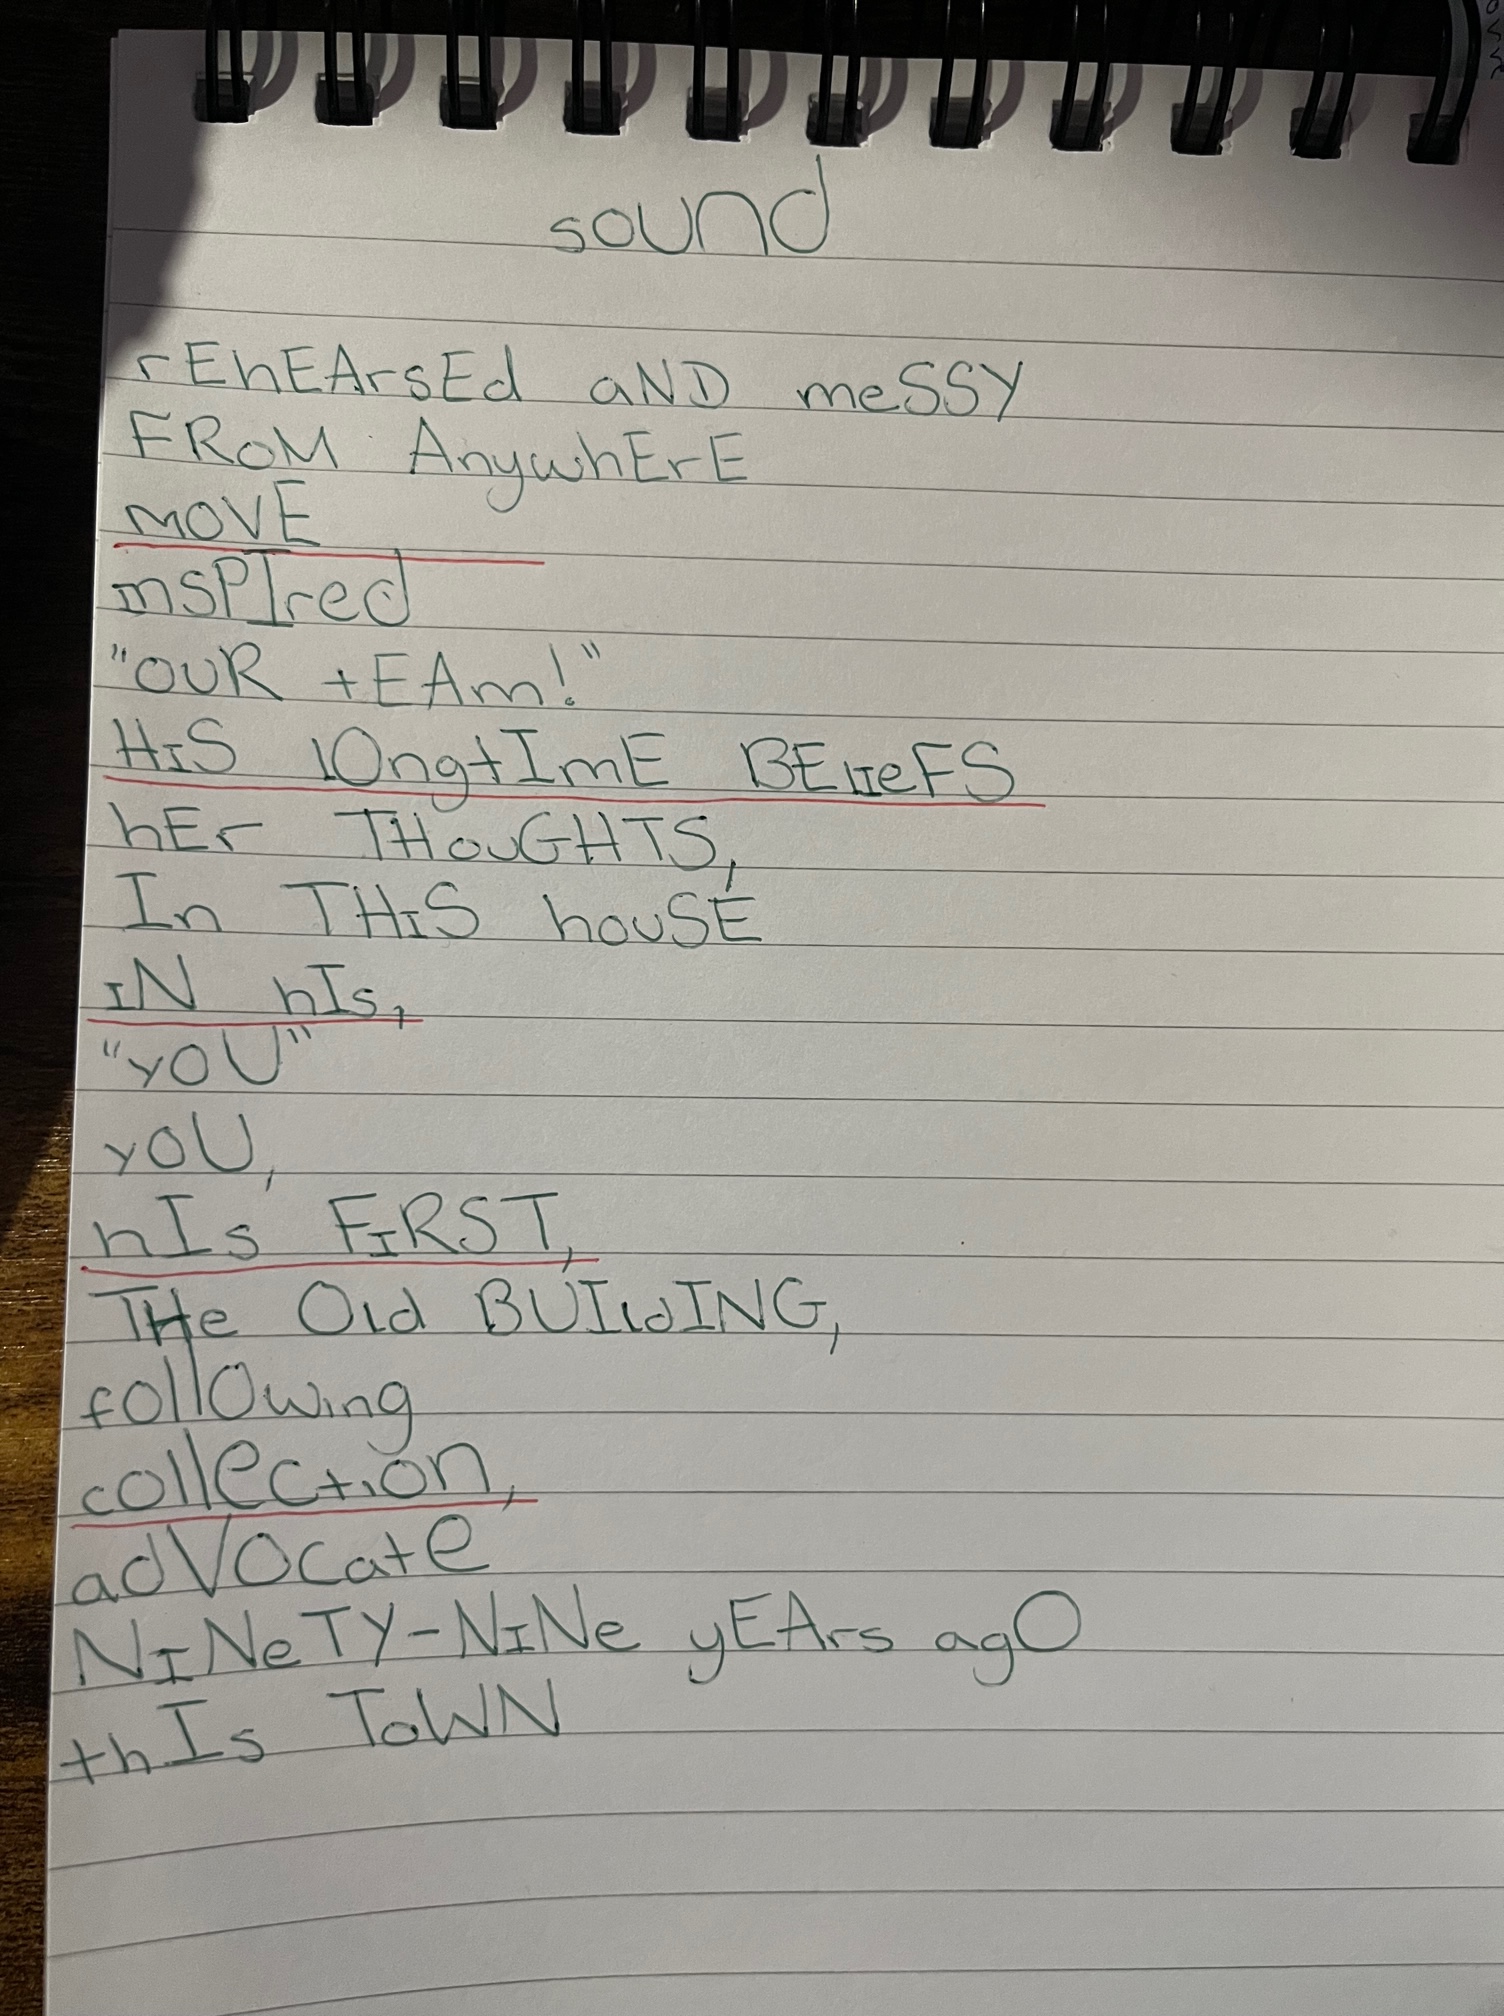 sound
rEhEArsEd aND meSSY
FRoM AnywhErE
mOVE
InsPIred
"OUR tEAm!"
HiS lOngtImE BElIeFS
hEr THouGHTS,
In THiS houSE
iN hIs,
"yOU"
yOU,
hIs FiRST,
THe Old BUIldING,
follOwing
collection,
adVOcate
NiNeTY-NiNe yEArs agO
thIs ToWN